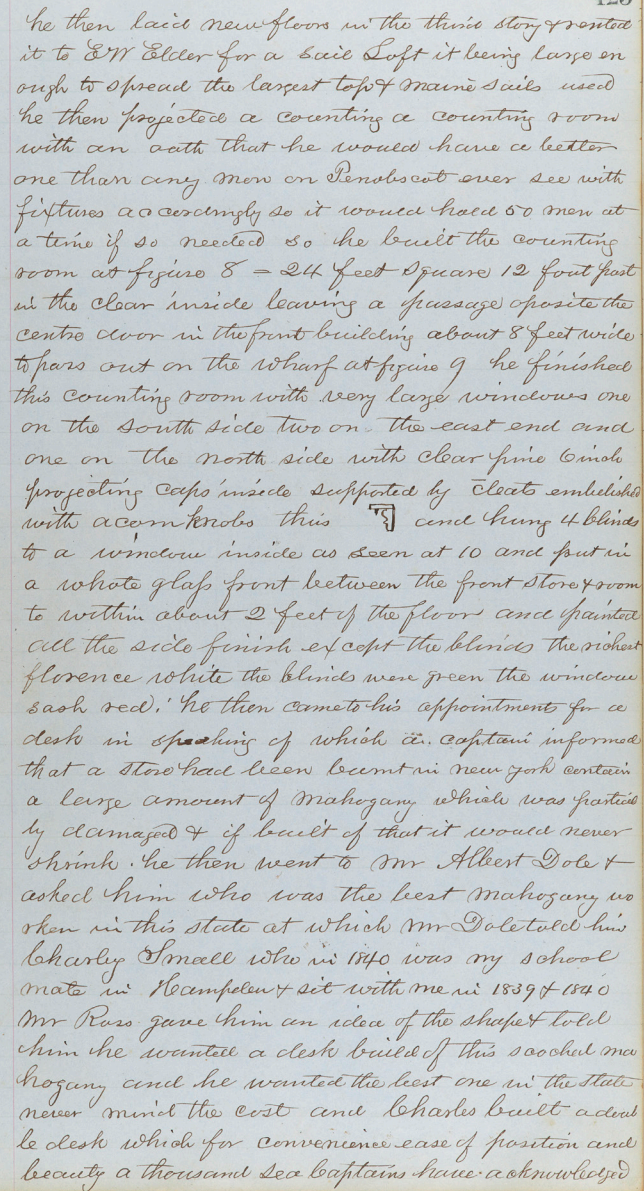 he then laid new floors in the third story & rented
it to E W Elder for a Sail Loft it being large en
ough to spread the largest top & maine sails used
he then projected a counting a counting room
with an oath that he would have a better
one than any man on Penobscot ever see with
fixtures accordingly so it would hold 50 men at
a time if so needed so he built the counting
room at figure 8 = 24 feet square 12 foot post
in the clear inside leaving a passage oposite the
centre door in the front building about 8 feet wide
to pass out on the wharf at figure 9 he finished
this counting room with very large windows one
on the south side two on the east end and
one on the north side with clear pine 6 inch
projecting caps inside supported by cleats embelished
with acorn knobs thus and hung 4 blinds
to a window inside as seen at 10 and put in
a whole glass front between the front store & room
to within about 2 feet of the floor and painted
all the side finish except the blinds the richest
florence white the blinds were green the window
sash red. he then came to his appointments for a
desk in speaking of which a captain informed
that a store had been burnt in new york contain
a large amount of mahogany which was partial
ly damaged & if built of that it would never
shrink. he then went to Mr Albert Dole &
asked him who was the best mahogany wo
rker in this state at which Mr Dole told him
Charley Small who in 1840 was my school
mate in Hampden & sit with me in 1839 & 1840
Mr Ross gave him an idea of the shape & told
him he wanted a desk build of this scochd ma
hogany and he wanted the best one in the state
never mind the cost and Charles built a doub
le desk which for convenience ease of position and
beauty a thousand sea Captains have acknowledged